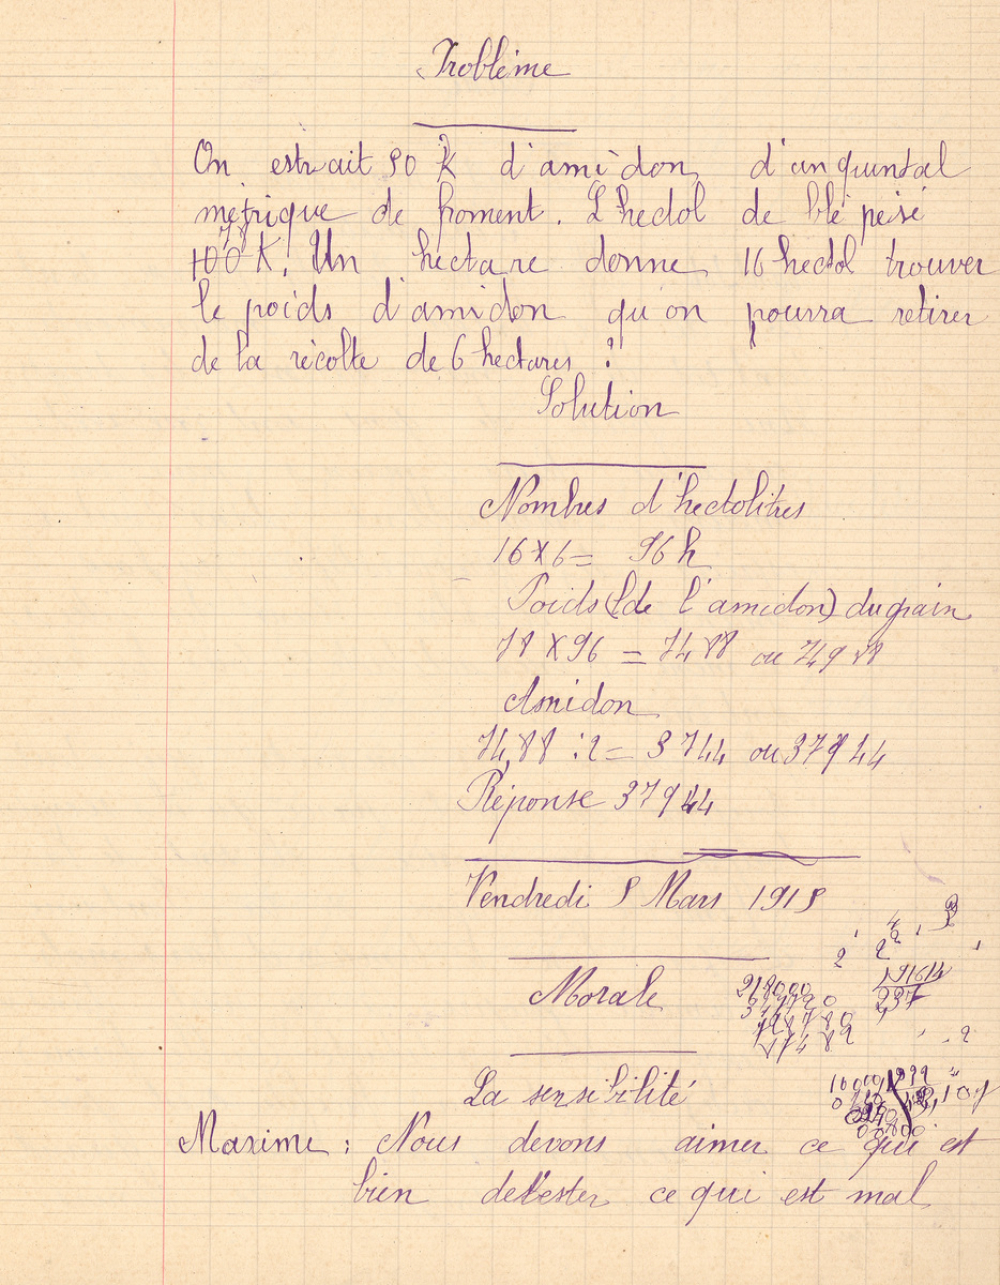 Problème
On estrait 50 K d'amidon d'un quintal
métrique de froment. L'hectol de blé pèse
78
100 K. Un hectare donne 16 hectol trouver
le poids d'amidon qu'on pourra retirer
de la récolte de 6 hectares ?
Solution
Nombres d'hectolitres
16 X 6 = 96 h
Poids (de l'amidon) du grain
78 X 96 = 7488 ou 74q88
Amidon
74,88 : 2 = 3744 ou 37q44
Réponse 37q44
Vendredi 5 Mars 1915
Morale
La sensibilité
Maxime : Nous devons aimer ce qui est
bien détester ce qui est mal